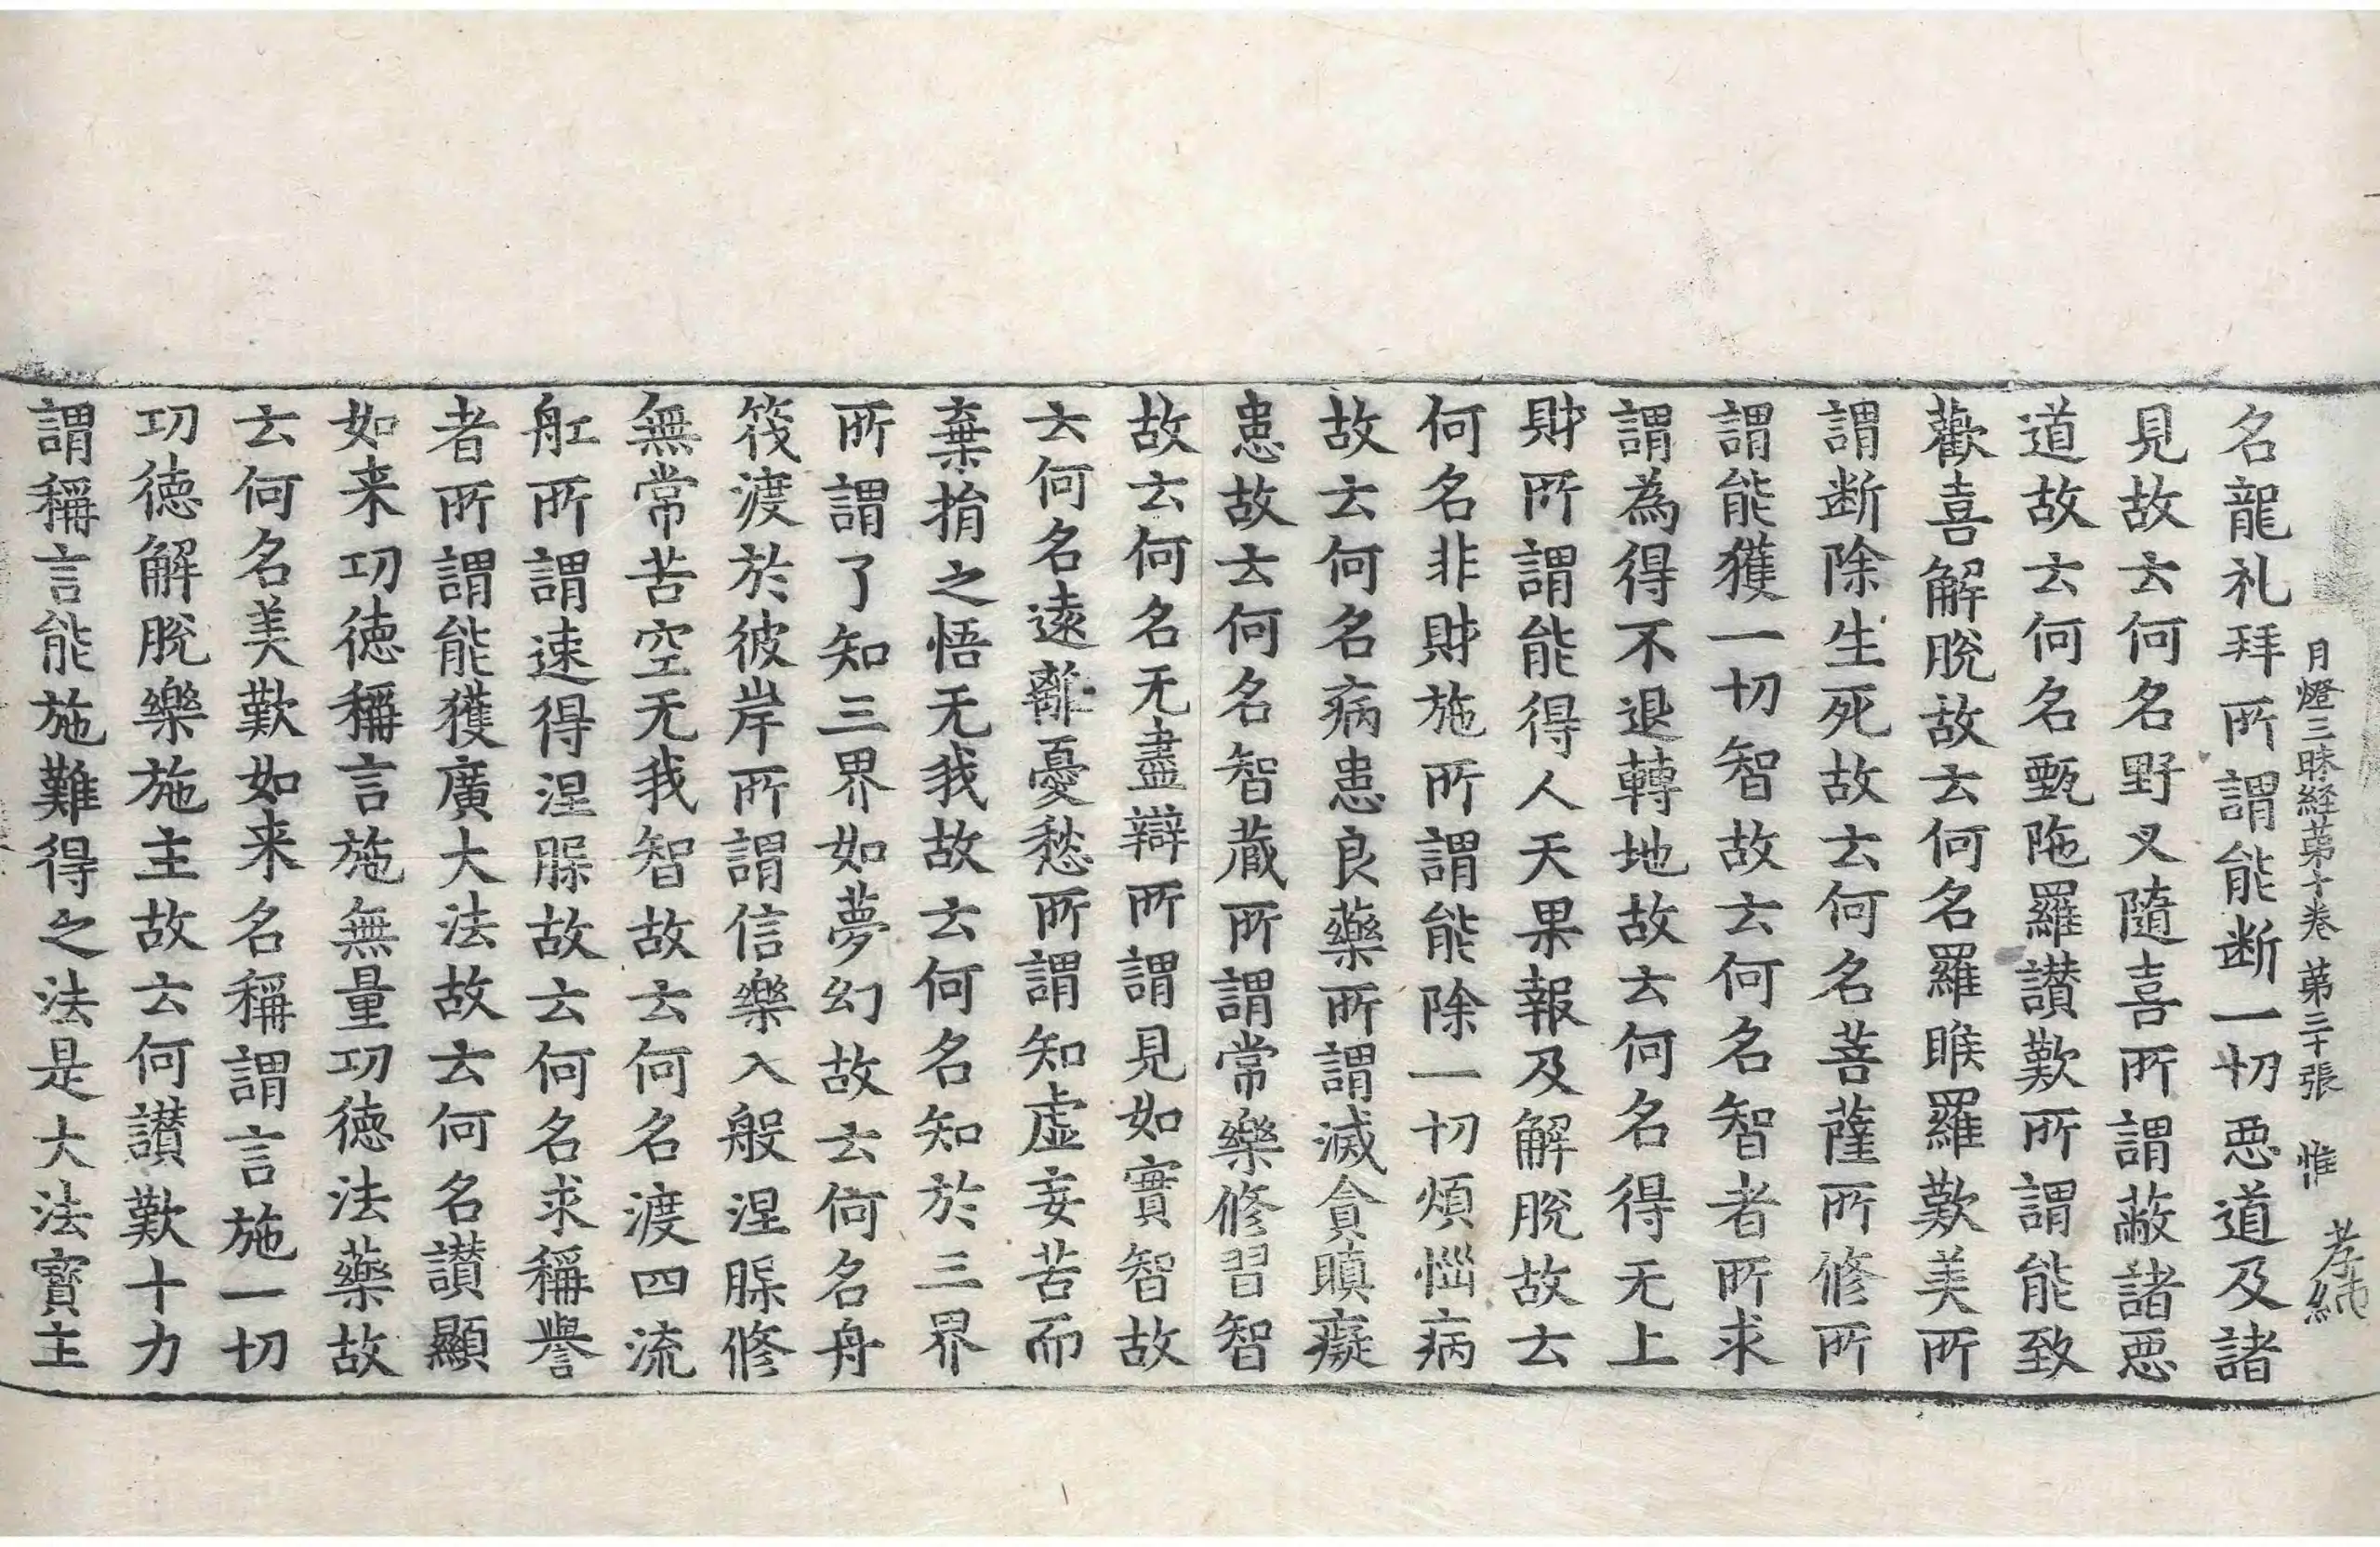 月燈三昧経苐十卷 苐三十張 惟 孝純
名龍礼拜所謂能断一切恶道及諸
見故云何名野叉隨喜所謂蔽諸恶
道故云何名甄陁羅讃歎所謂能致
歡喜解脫故云何名羅睺羅歎美所
謂断除生死故云何名菩薩所修所
謂能獲一切智故云何名智者所求
謂為得不退轉地故云何名得无上
財所謂能得人天果報及解脫故云
何名非財施所謂能除一切煩惱病
故云何名病患良藥所謂滅貪瞋癡
患故云何名智蔵所謂常樂修習智
故云何名无盡辯所謂見如實智故
云何名遠離憂愁所謂知虛妄苦而
棄捐之悟无我故云何名知於三界
所謂了知三界如夢幻故云何名舟
筏渡於彼岸所謂信樂入般涅槃修
無常苦空无我智故云何名渡四流
舡所謂速得涅槃故云何名求稱譽
者所謂能獲廣大法故云何名讃顯
如来功徳稱言施無量功徳法藥故
云何名美歎如来名稱謂言施一切
功徳解脫樂施主故云何讃歎十力
謂稱言能施難得之法是大法寳主